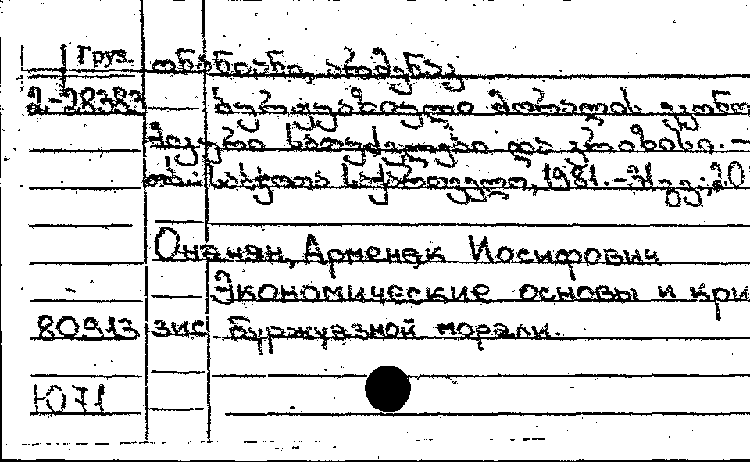 Груз.
ონანიანი, არმენაკ
2-28383 ბურჟუაზიული მორალის ეკონო
მიკური საფუძვლები და კრიზისი. –
თბ.: საბჭოთა საქართველო, 1981.–31 გვ.; 20
Онанян, Арменак Иосифович
Экономические основы и кри
80913 зис буржуазной морали.
Ю71